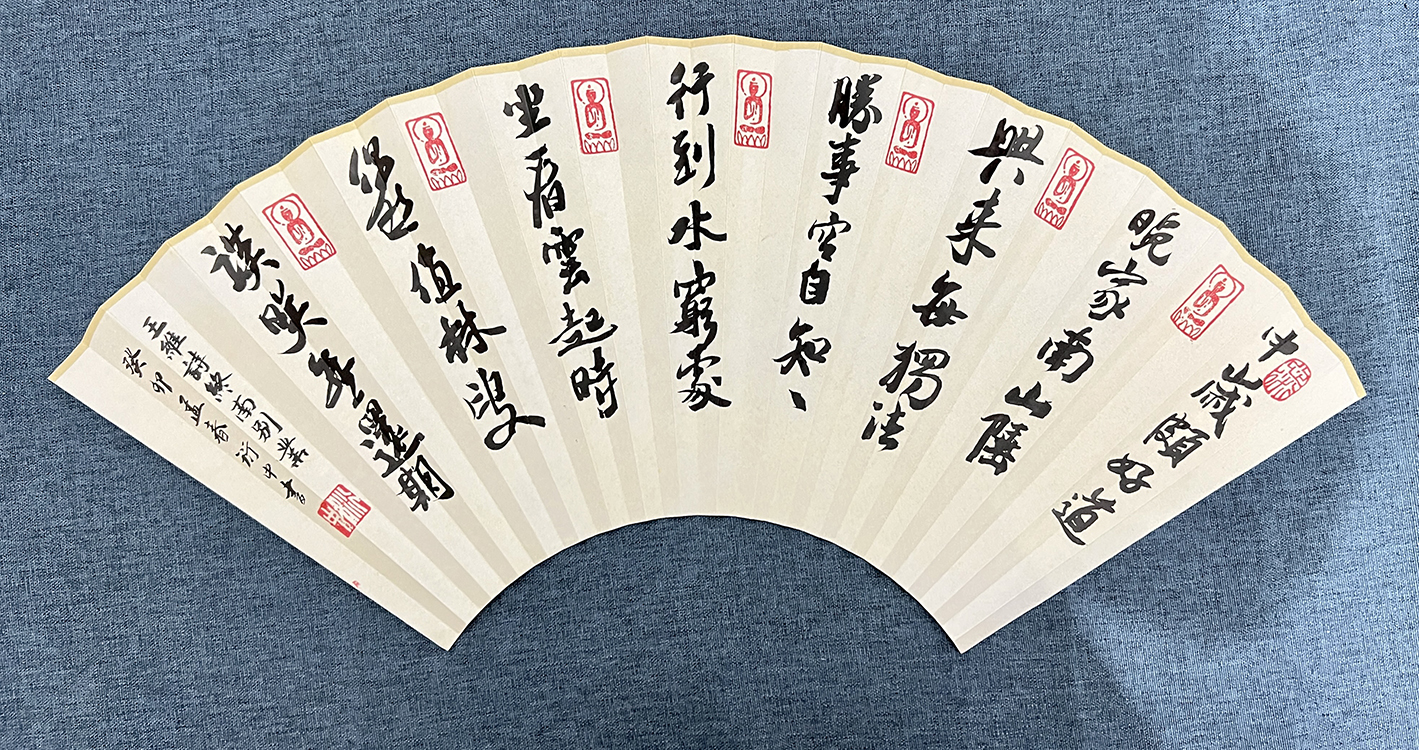 中歲頗好道
晚家南山陲
興来每獨往
勝事空自知、
行到水窮處
坐看雲起時
偶然值林叟
談笑無還期
王維詩終南别業
癸卯孟春中書